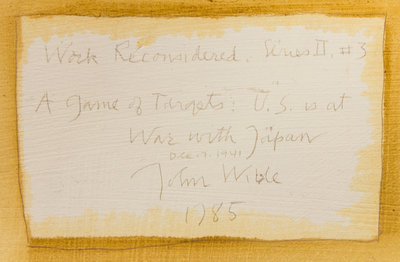 Work Reconsidered. Series II, #3
A Game of Targets: U.S. is at
War with Japan
Dec. 7. 1941
John Wilde
1985